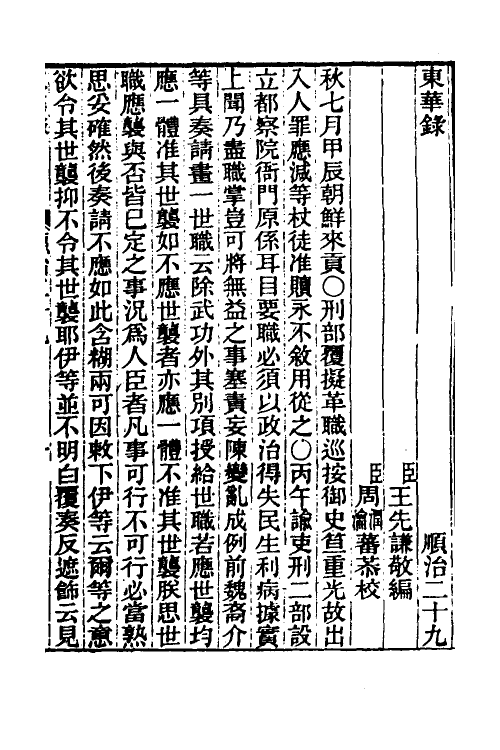 東華錄　順治二十九
臣王先謙敬編
臣周潤蕃周瀹蕃恭校
秋七月甲辰朝鮮來貢○刑部覆擬革職巡按御史笪重光故出
入人罪應減等杖徒准贖永不敘用從之○丙午諭吏刑二部設
立都察院衙門原係耳目要職必須以政治得失民生利病據實
上聞乃盡職掌豈可將無益之事塞責妄陳變亂成例前魏裔介
等具奏請畫一世職云除武功外其別項授給世職若應世襲均
應一體准其世襲如不應世襲者亦應一體不准其世襲朕思世
職應襲與否皆已定之事況爲人臣者凡事可行不可行必當熟
思妥確然後奏請不應如此含糊兩可因敕下伊等云爾等之意
欲令其世襲抑不令其世襲耶伊等並不明白覆奏反遮飾云見